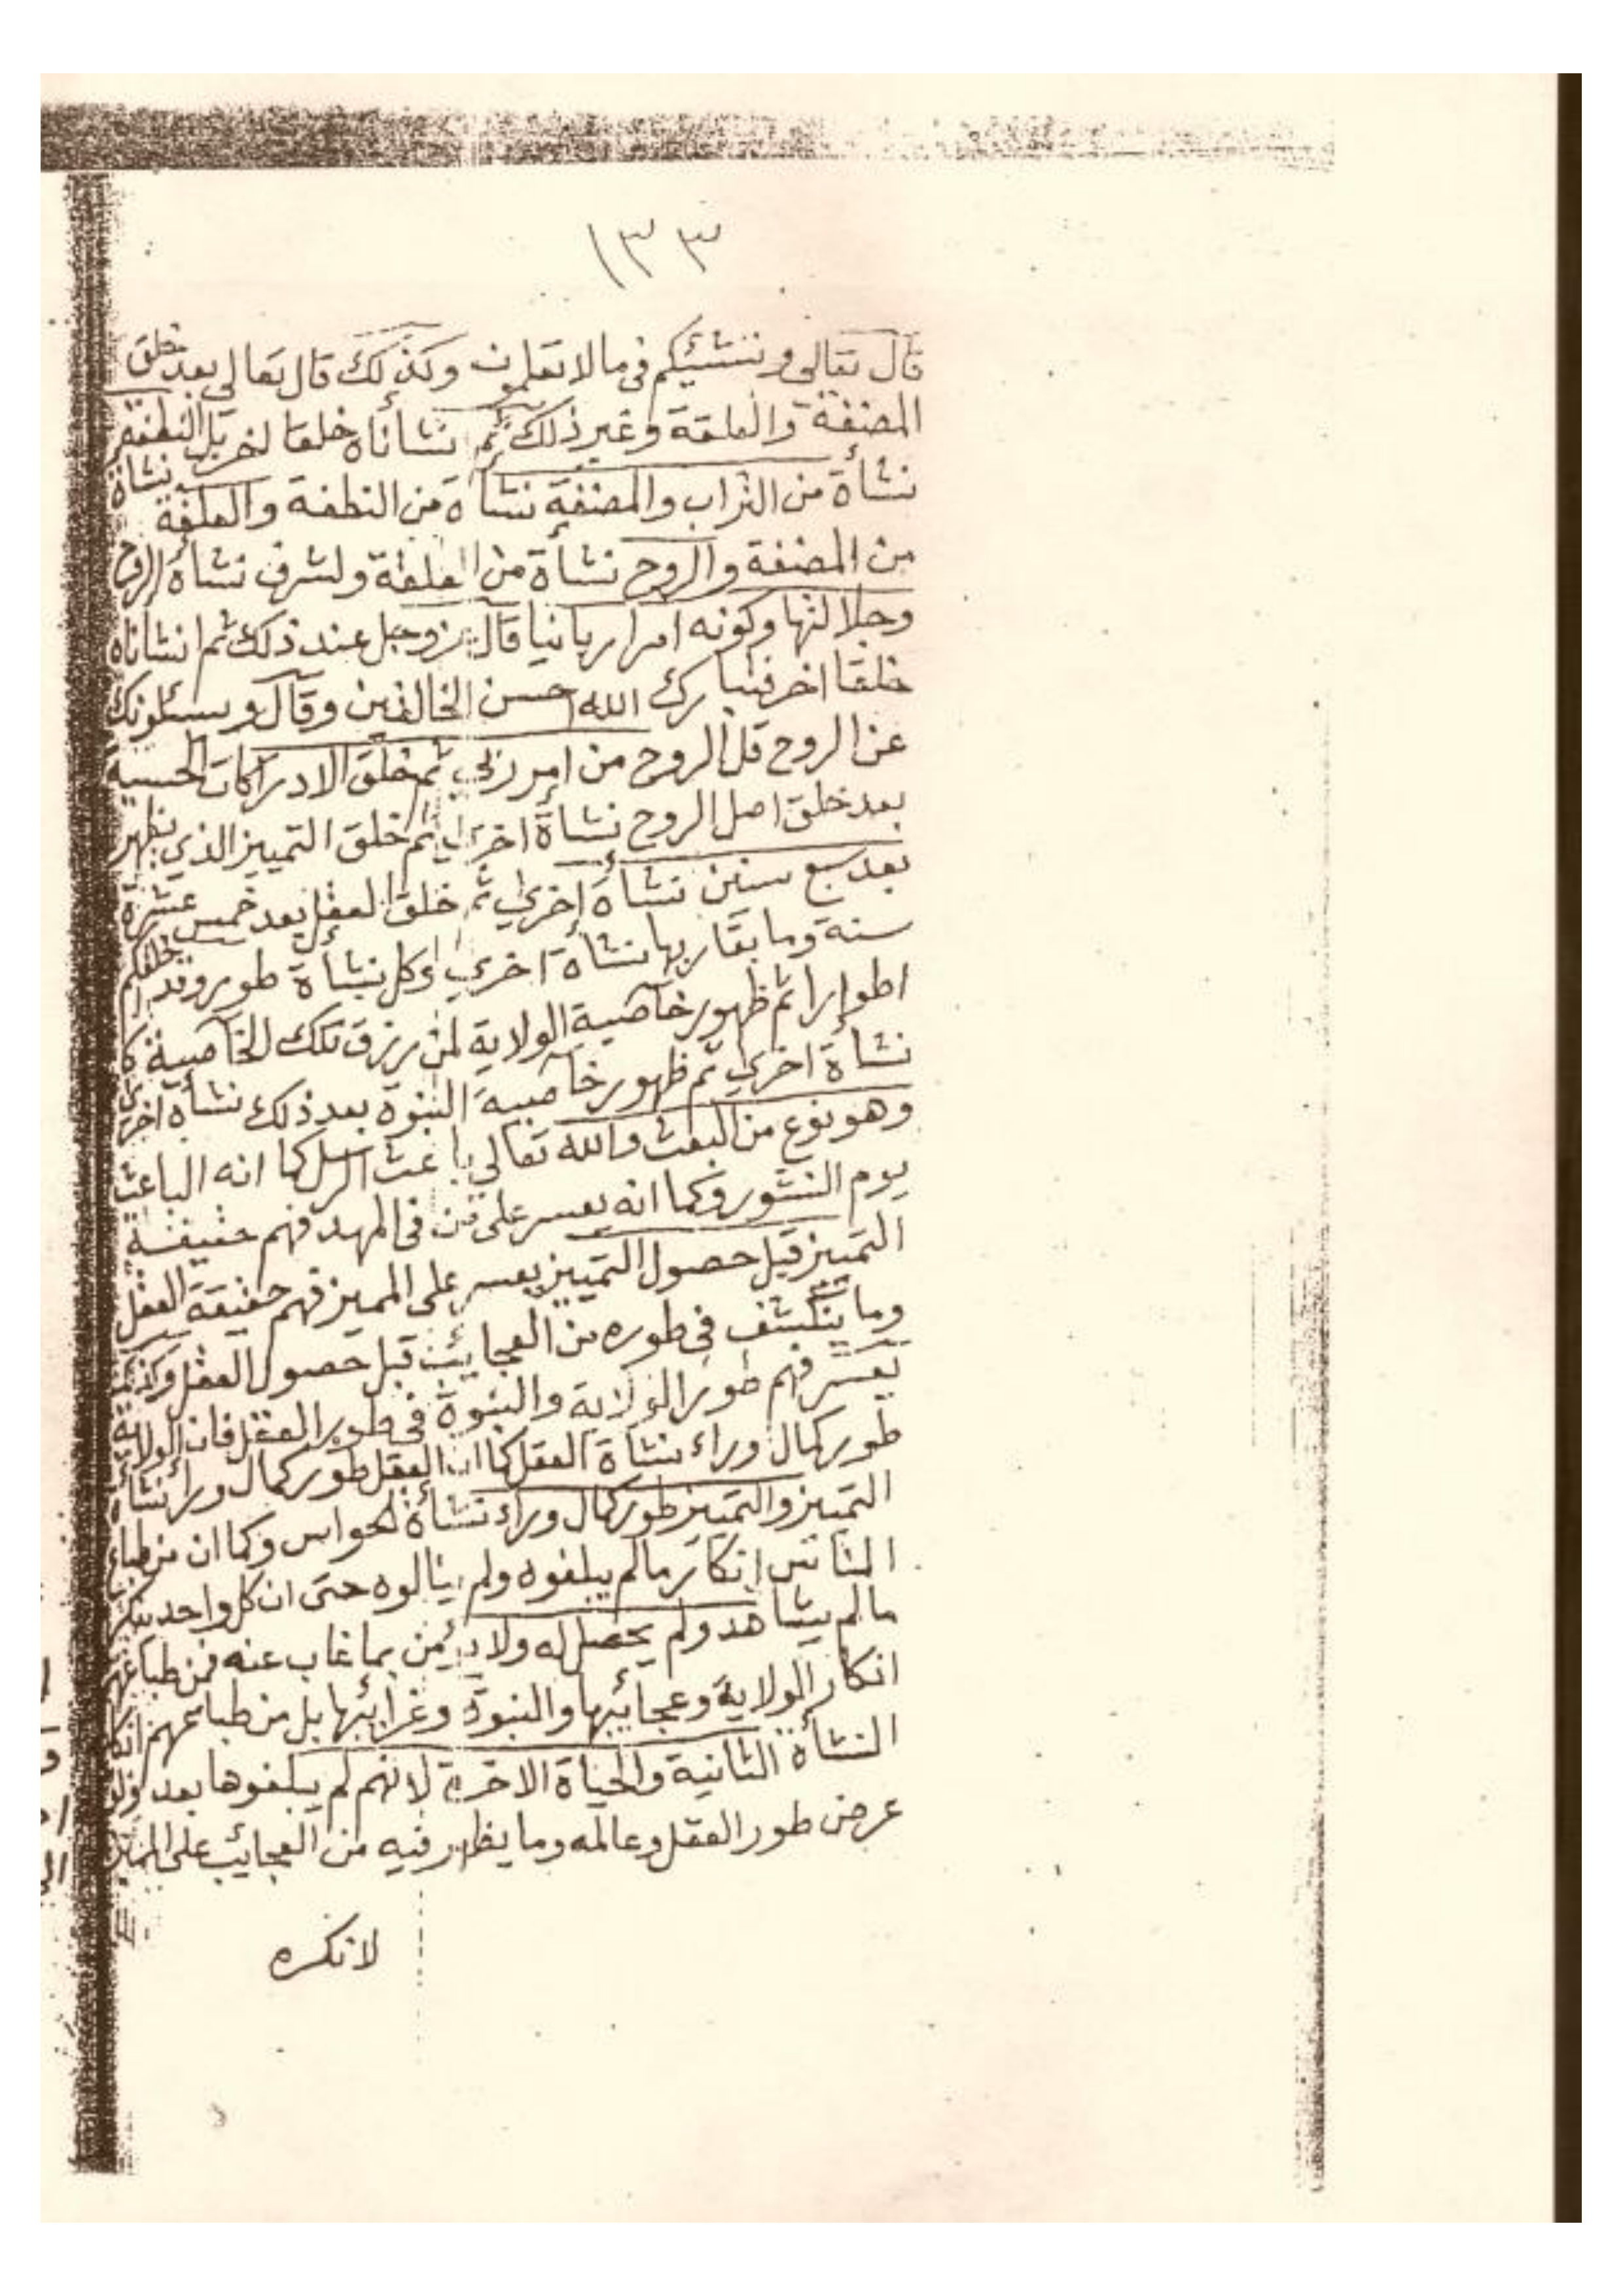 ١٣٣
قال تعالى وننشئكم فى ما لا تعلمون وكذلك قال تعالى بعد خلق
المضغة والعلقة وغير ذلك ثم نشأناه خلقا اخر بل النطفة
نشأة من التراب والمضغة نشأة من النطفة والعلقة نشاة
من المضغة والروح نشأة من العلقة ولشرف نشأة الروح
وجلالتها وكونه امرا ربانيا قال عز وجل عند ذلك ثم انشأناه
خلقا اخر فتبارك الله احسن الخالقين وقال ويسئلونك
عن الروح قل الروح من امر ربي ثم خلق الادراكات الحسية
بعد خلق اصل الروح نشأة اخرى ثم خلق التمييز الذي يظهر
بعد سبع سنين نشأة اخري ثم خلق العقل بعد خمس عشرة
سنة وما يقاربها نشأة اخري وكل نشأة طور وقد خلقكم
اطوارا ثم ظهور خاصية الولاية لمن رزق تلك الخاصية
نشأة اخري ثم ظهور خاصية النبوة بعد ذلك نشأة اخرى
وهو نوع من البعث والله تعالي باعث الرسل كما انه الباعث
يوم النشور وكما انه يعسر على من فى المهد فهم حقيقة
التمييز قبل حصول التمييز يعسر على المميز فهم حقيقة العقل
وما ينكشف فى طوره من العجايب قبل حصول العقل وكذلك
يعسر فهم طور الولاية والنبوة فى طور العقل فان الولاية
طور كمال وراء نشأة العقل كما ان العقل طور كمال وراء نشأة
التمييز والتمييز طور كمال وراء نشأة الحواس وكما ان من طباع
الناس إنكار ما لم يبلغوه ولم ينالوه حتى ان كل واحد ينكر
ما لم يشاهد ولم يحصل له ولا يؤمن بما غاب عنه فمن طباعهم
انكار الولاية وعجائبها والنبوة وغرائبها بل من طباعهم انكار
النشأة الثانية والحياة الاخرة لانهم لم يبلغوها بعد ولو
عرض طور العقل وعالمه وما يظهر فيه من العجايب على المميز
لانكره